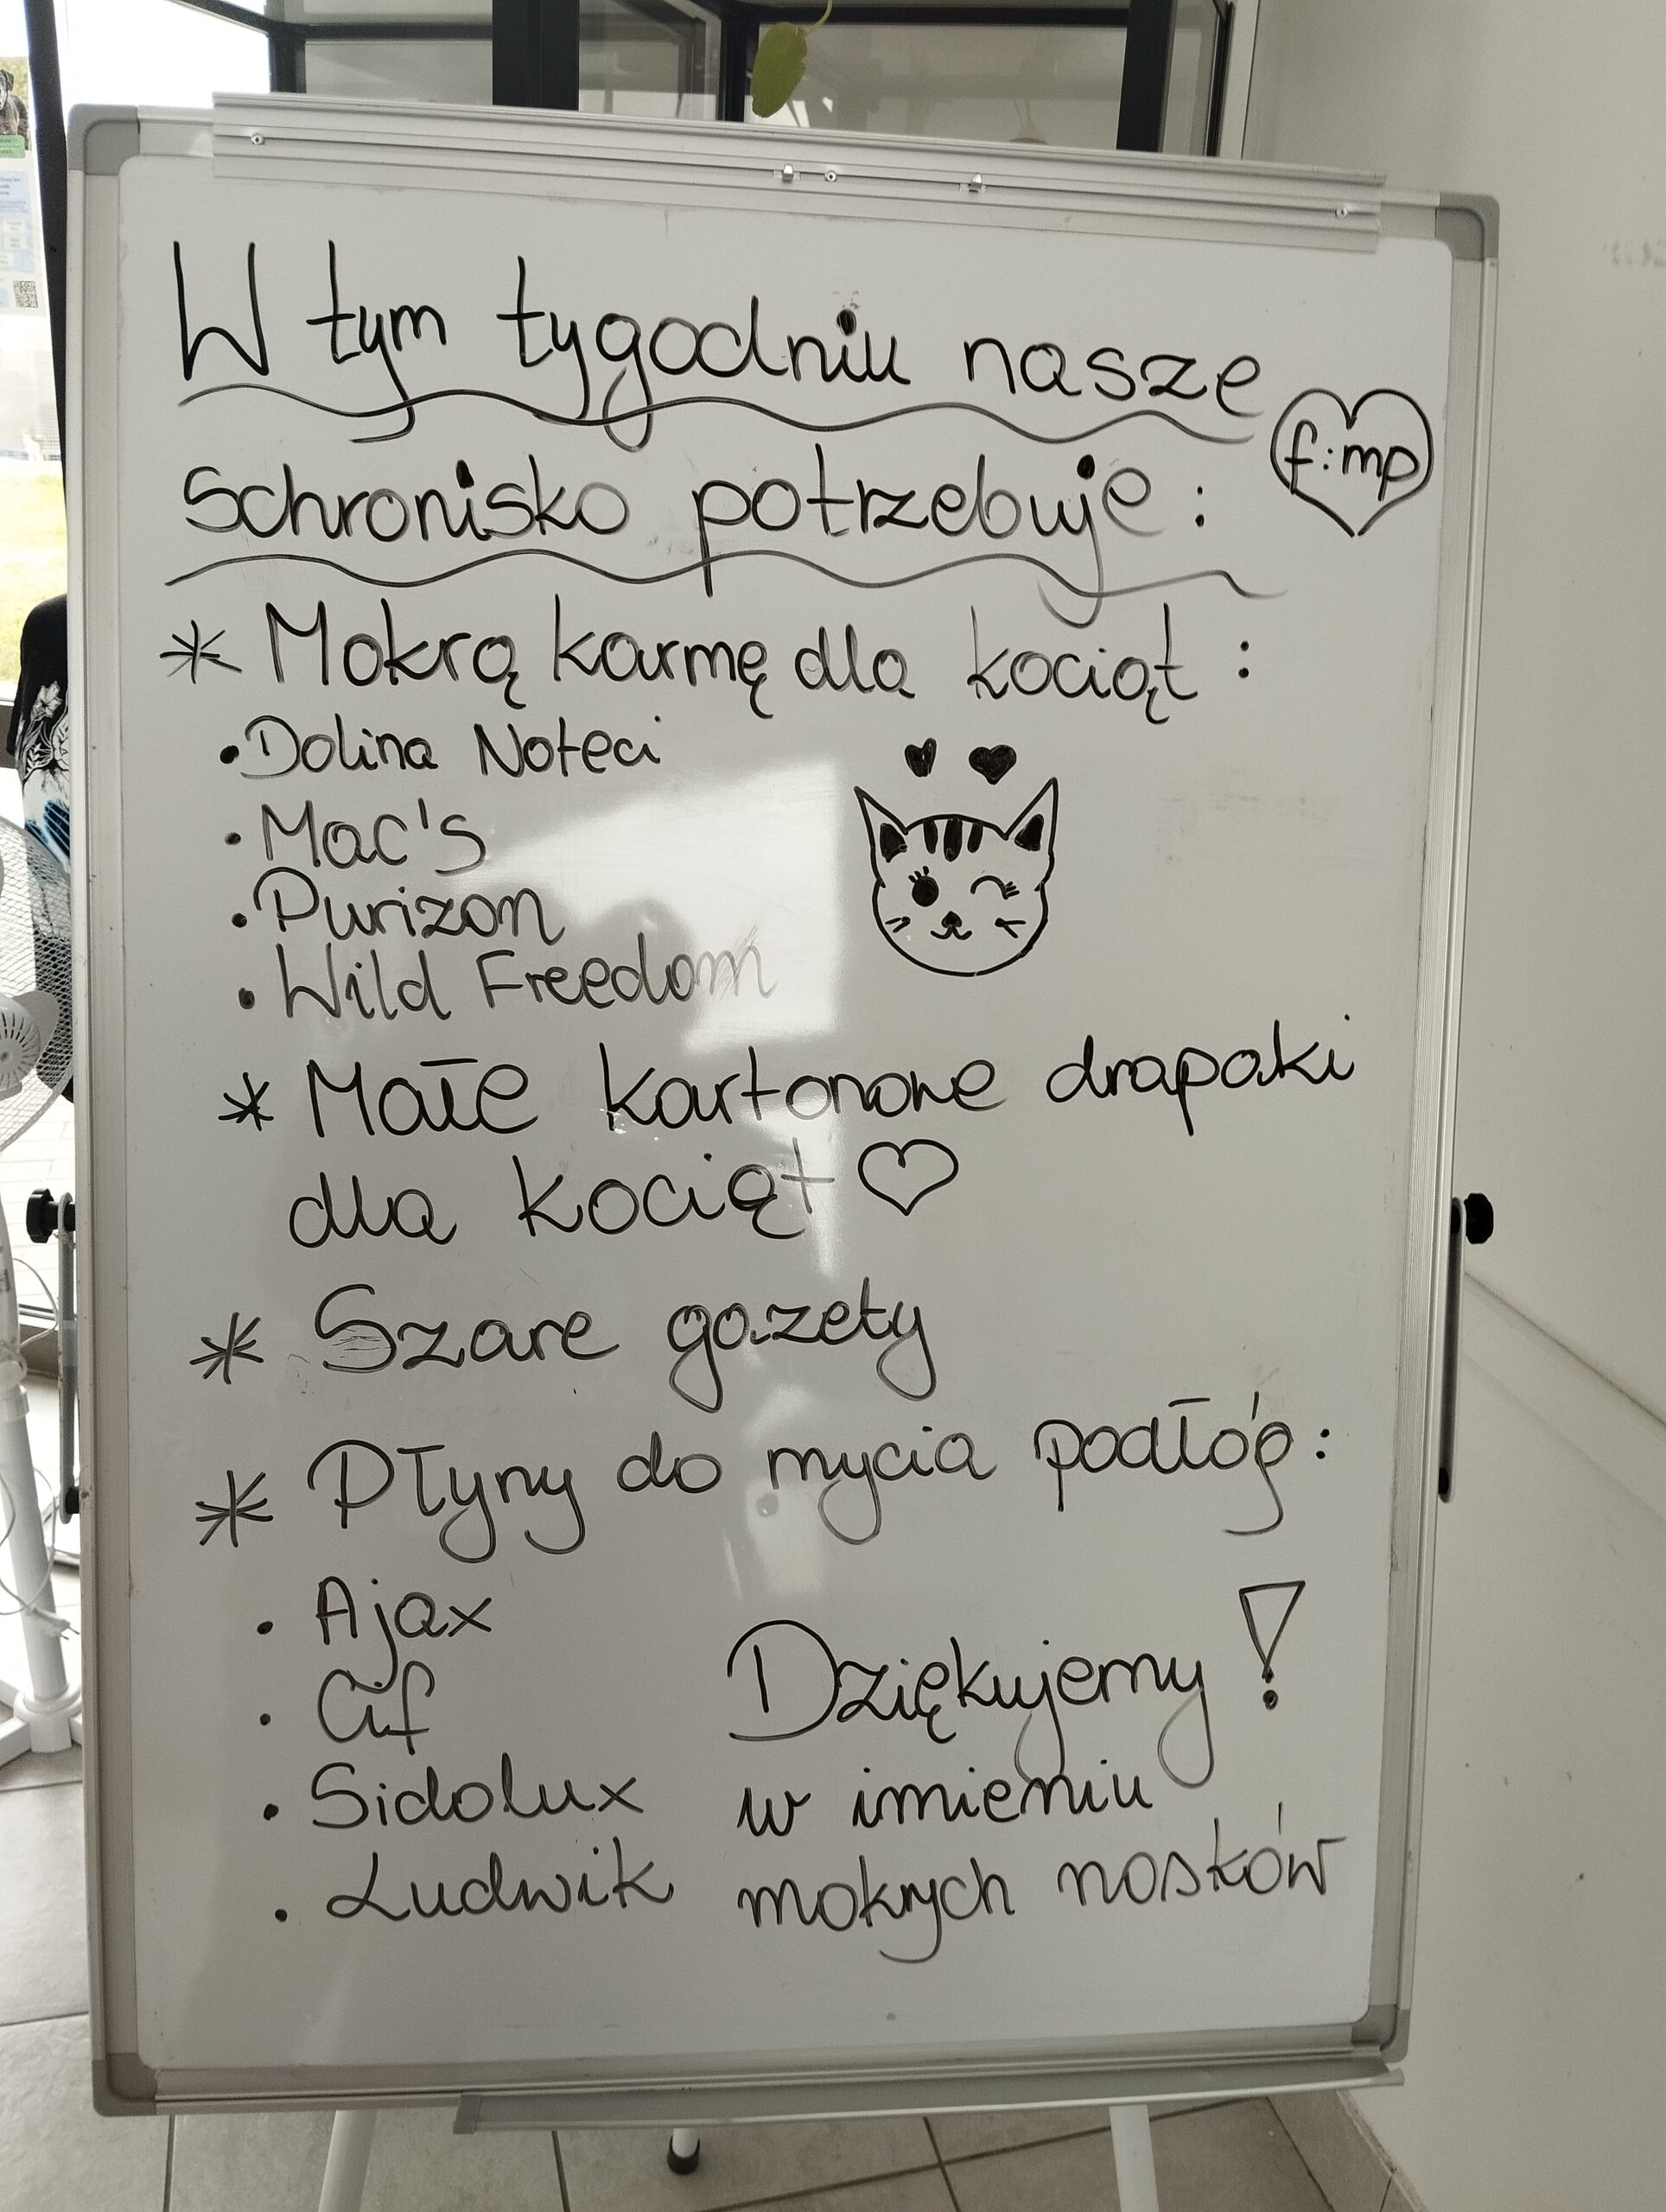 W tym tygodniu nasze
schronisko potrzebuje:
f:mp
* Mokrą karmę dla kociąt:
• Dolina Noteci
• Mac's
• Purizon
• Wild Freedom
* Małe kartonowe drapaki
dla kociąt ♡
* Szare gazety
* Płyny do mycia podłóg:
• Ajax
• Cif
• Sidolux
• Ludwik
Dziękujemy!
w imieniu
mokrych nosków